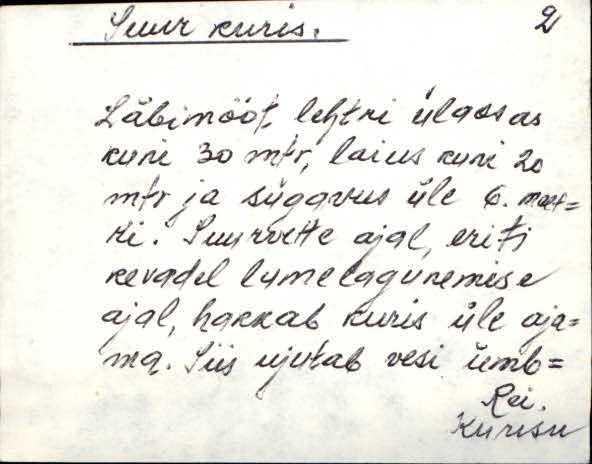 Suur kuris. 2
Läbimõõt, lehtri ülaosas
kuni 30 mtr, laius kuni 20
mtr ja sügavus üle 6. meet=
ri. Suurvete ajal, eriti
kevadel lumelagunemise
ajal, hakkab kuris üle aja=
ma. Siis ujutab vesi ümb=
Rei.
Kurisu